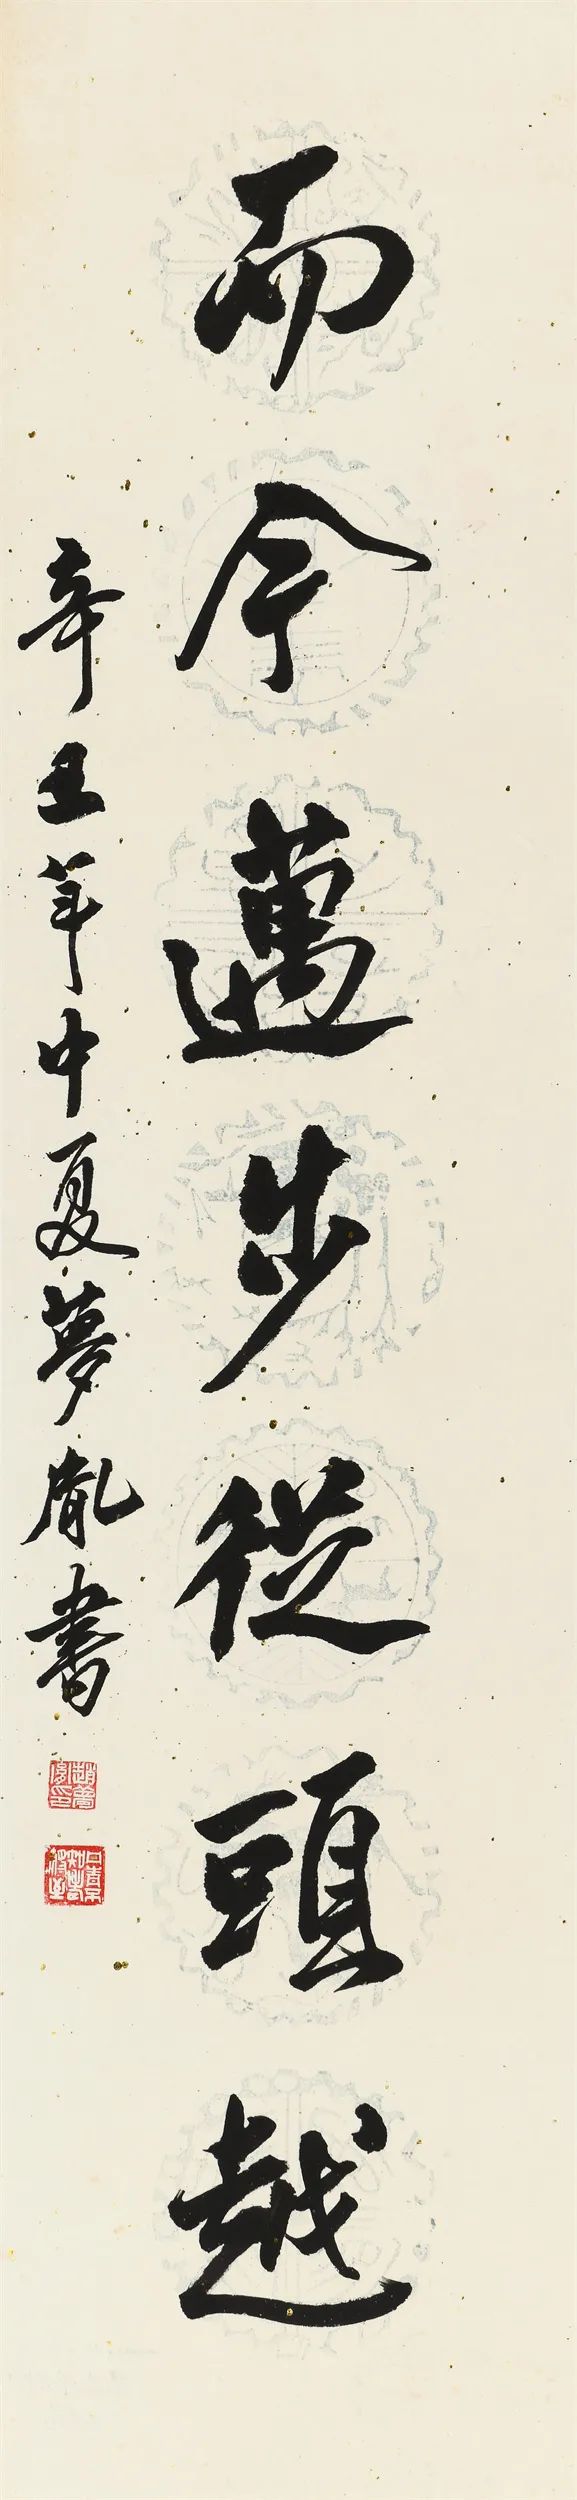 而今邁步從頭越
辛丑年中夏夢胤書